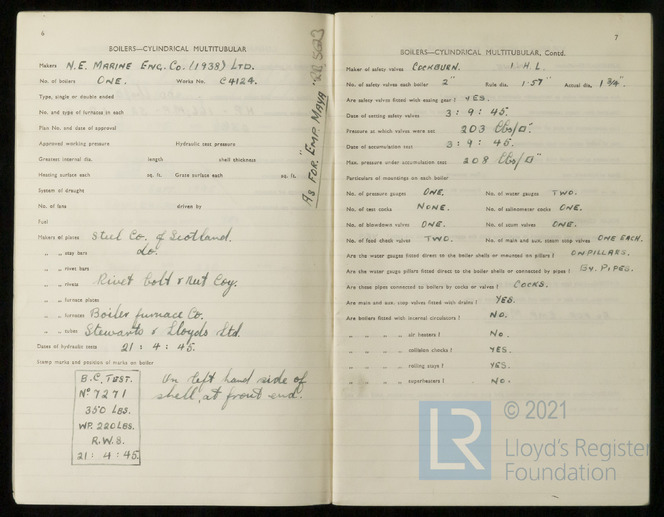 6
BOILERS—CYLINDRICAL MULTITUBULAR
Makers N.E. MARINE ENG. Co. (1938) LTD.
No. of boilers ONE. Works No. C4124.
Type, single or double ended
No. and type of furnaces in each
Plan No. and date of approval
Approved working pressure Hydraulic test pressure
Greatest internal dia. length shell thickness
Heating surface each sq. ft. Grate surface each sq. ft.
System of draught
No. of fans driven by
Fuel
Makers of plates Steel Co. of Scotland.
„ „ stay bars do.
„ „ rivet bars
„ „ rivets Rivet Bolt & Nut Coy.
„ „ furnace plates
„ „ furnaces Boiler furnace Co.
„ „ tubes Stewarts & Lloyds Ltd.
Dates of hydraulic tests 21 : 4 : 45.
Stamp marks and position of marks on boiler
B.C. TEST.
No 7271
350 LBS.
WP. 220 LBS.
R.W.S.
21 : 4 : 45.
On left hand side of
shell, at front end.
AS FOR "EMP. MAYA"
7
BOILERS—CYLINDRICAL MULTITUBULAR, Contd.
Maker of safety valves COCKBURN. I.H.L.
No. of safety valves each boiler 2" Rule dia. 1·57" Actual dia. 1 3/4".
Are safety valves fitted with easing gear? YES.
Date of setting safety valves 3 : 9 : 45.
Pressure at which valves were set 203 lbs/□".
Date of accumulation test 3 : 9 : 45.
Max. pressure under accumulation test 208 lbs/□"
Particulars of mountings on each boiler
No. of pressure gauges ONE. No. of water gauges TWO.
No. of test cocks NONE. No. of salinometer cocks ONE.
No. of blowdown valves ONE. No. of scum valves ONE.
No. of feed check valves TWO. No. of main and aux. steam stop valves ONE EACH.
Are the water gauges fitted direct to the boiler shells or mounted on pillars? ON PILLARS.
Are the water gauge pillars fitted direct to the boiler shells or connected by pipes? BY. PIPES.
Are these pipes connected to boilers by cocks or valves? COCKS.
Are main and aux. stop valves fitted with drains? YES.
Are boilers fitted with internal circulators? NO.
„ „ „ „ air heaters? NO.
„ „ „ „ collision chocks? YES.
„ „ „ „ rolling stays? YES.
„ „ „ „ superheaters? NO.
© 2021
LR
Lloyd's Register
Foundation